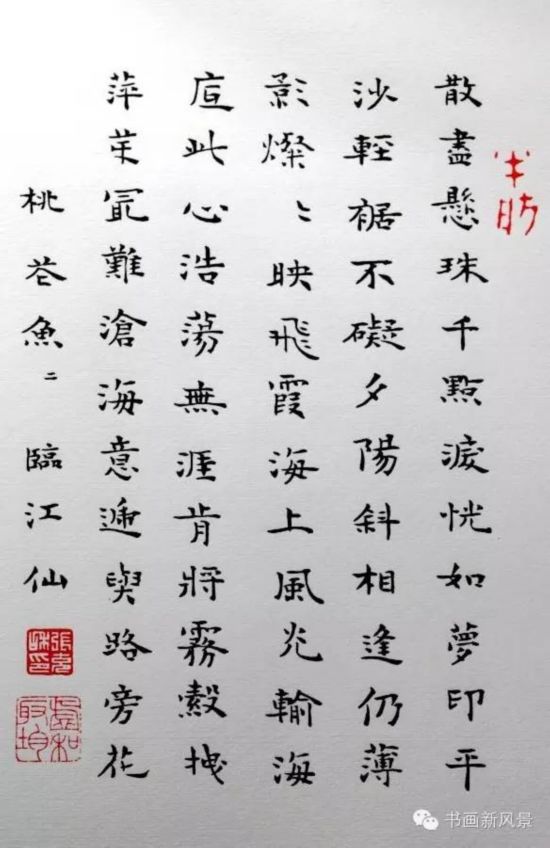 半舫
散盡懸珠千點淚恍如夢印平
沙輕裾不礙夕陽斜相逢仍薄
影燦〻映飛霞海上風光輸海
底此心浩蕩無涯肯將霧縠拽
萍芽冣難滄海意遞與路旁花
桃花魚二 臨江仙
书画新风景